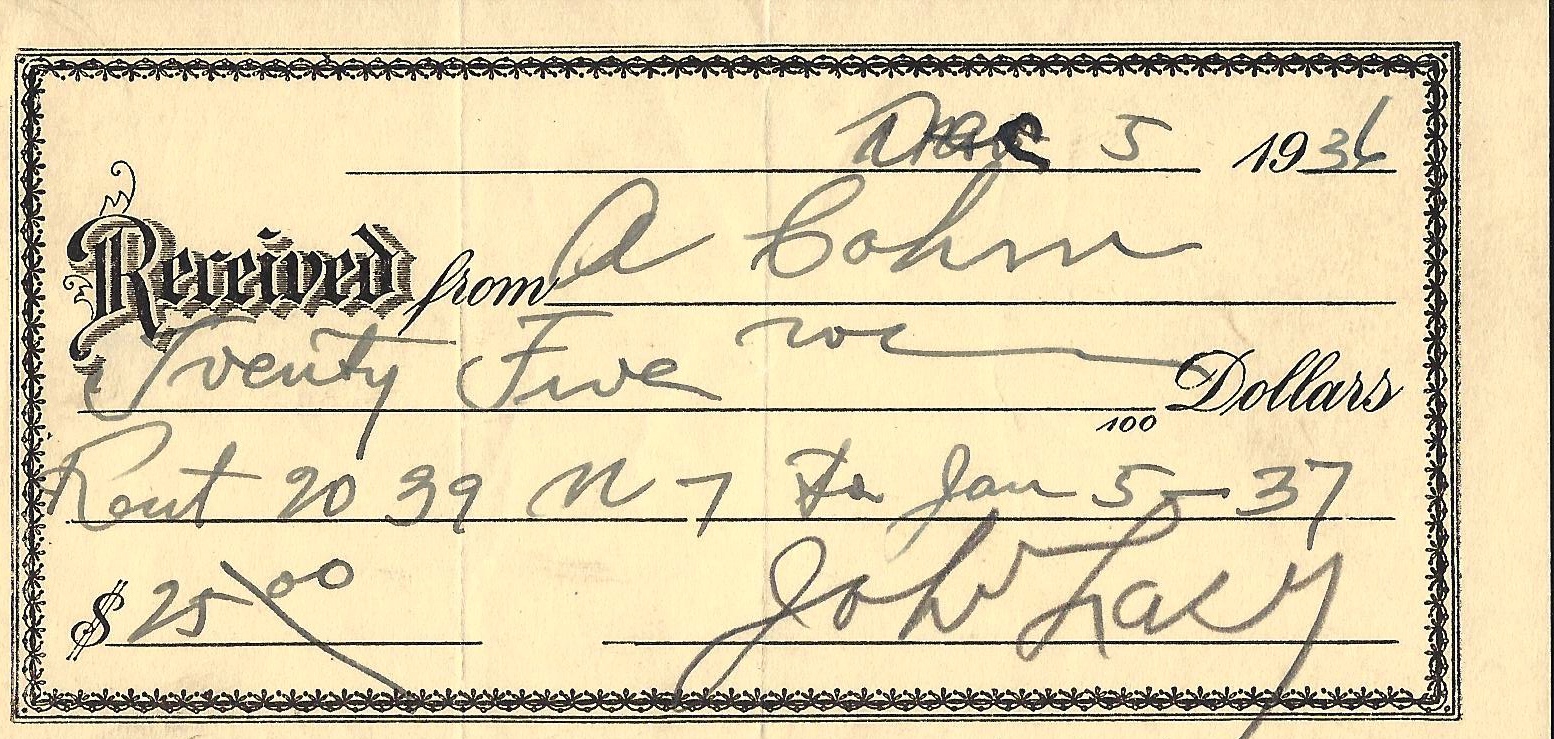 Dec 5 1936
Received from A Cohm
Twenty Five no Dollars
100
Rent 20 39 N 7 To Jan 5 - 37
$ 25 00 John Lacy